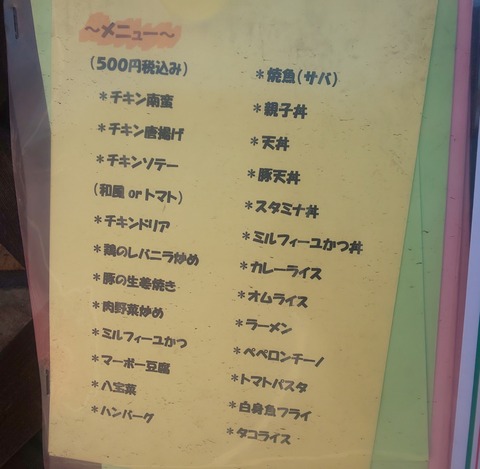 ～メニュー～
(500円税込み)
＊チキン南蛮
＊チキン唐揚げ
＊チキンソテー
(和風 or トマト)
＊チキンドリア
＊鶏のレバニラ炒め
＊豚の生姜焼き
＊肉野菜炒め
＊ミルフィーユかつ
＊マーボー豆腐
＊八宝菜
＊ハンバーグ
＊焼魚(サバ)
＊親子丼
＊天丼
＊豚天丼
＊スタミナ丼
＊ミルフィーユかつ丼
＊カレーライス
＊オムライス
＊ラーメン
＊ペペロンチーノ
＊トマトパスタ
＊白身魚フライ
＊タコライス